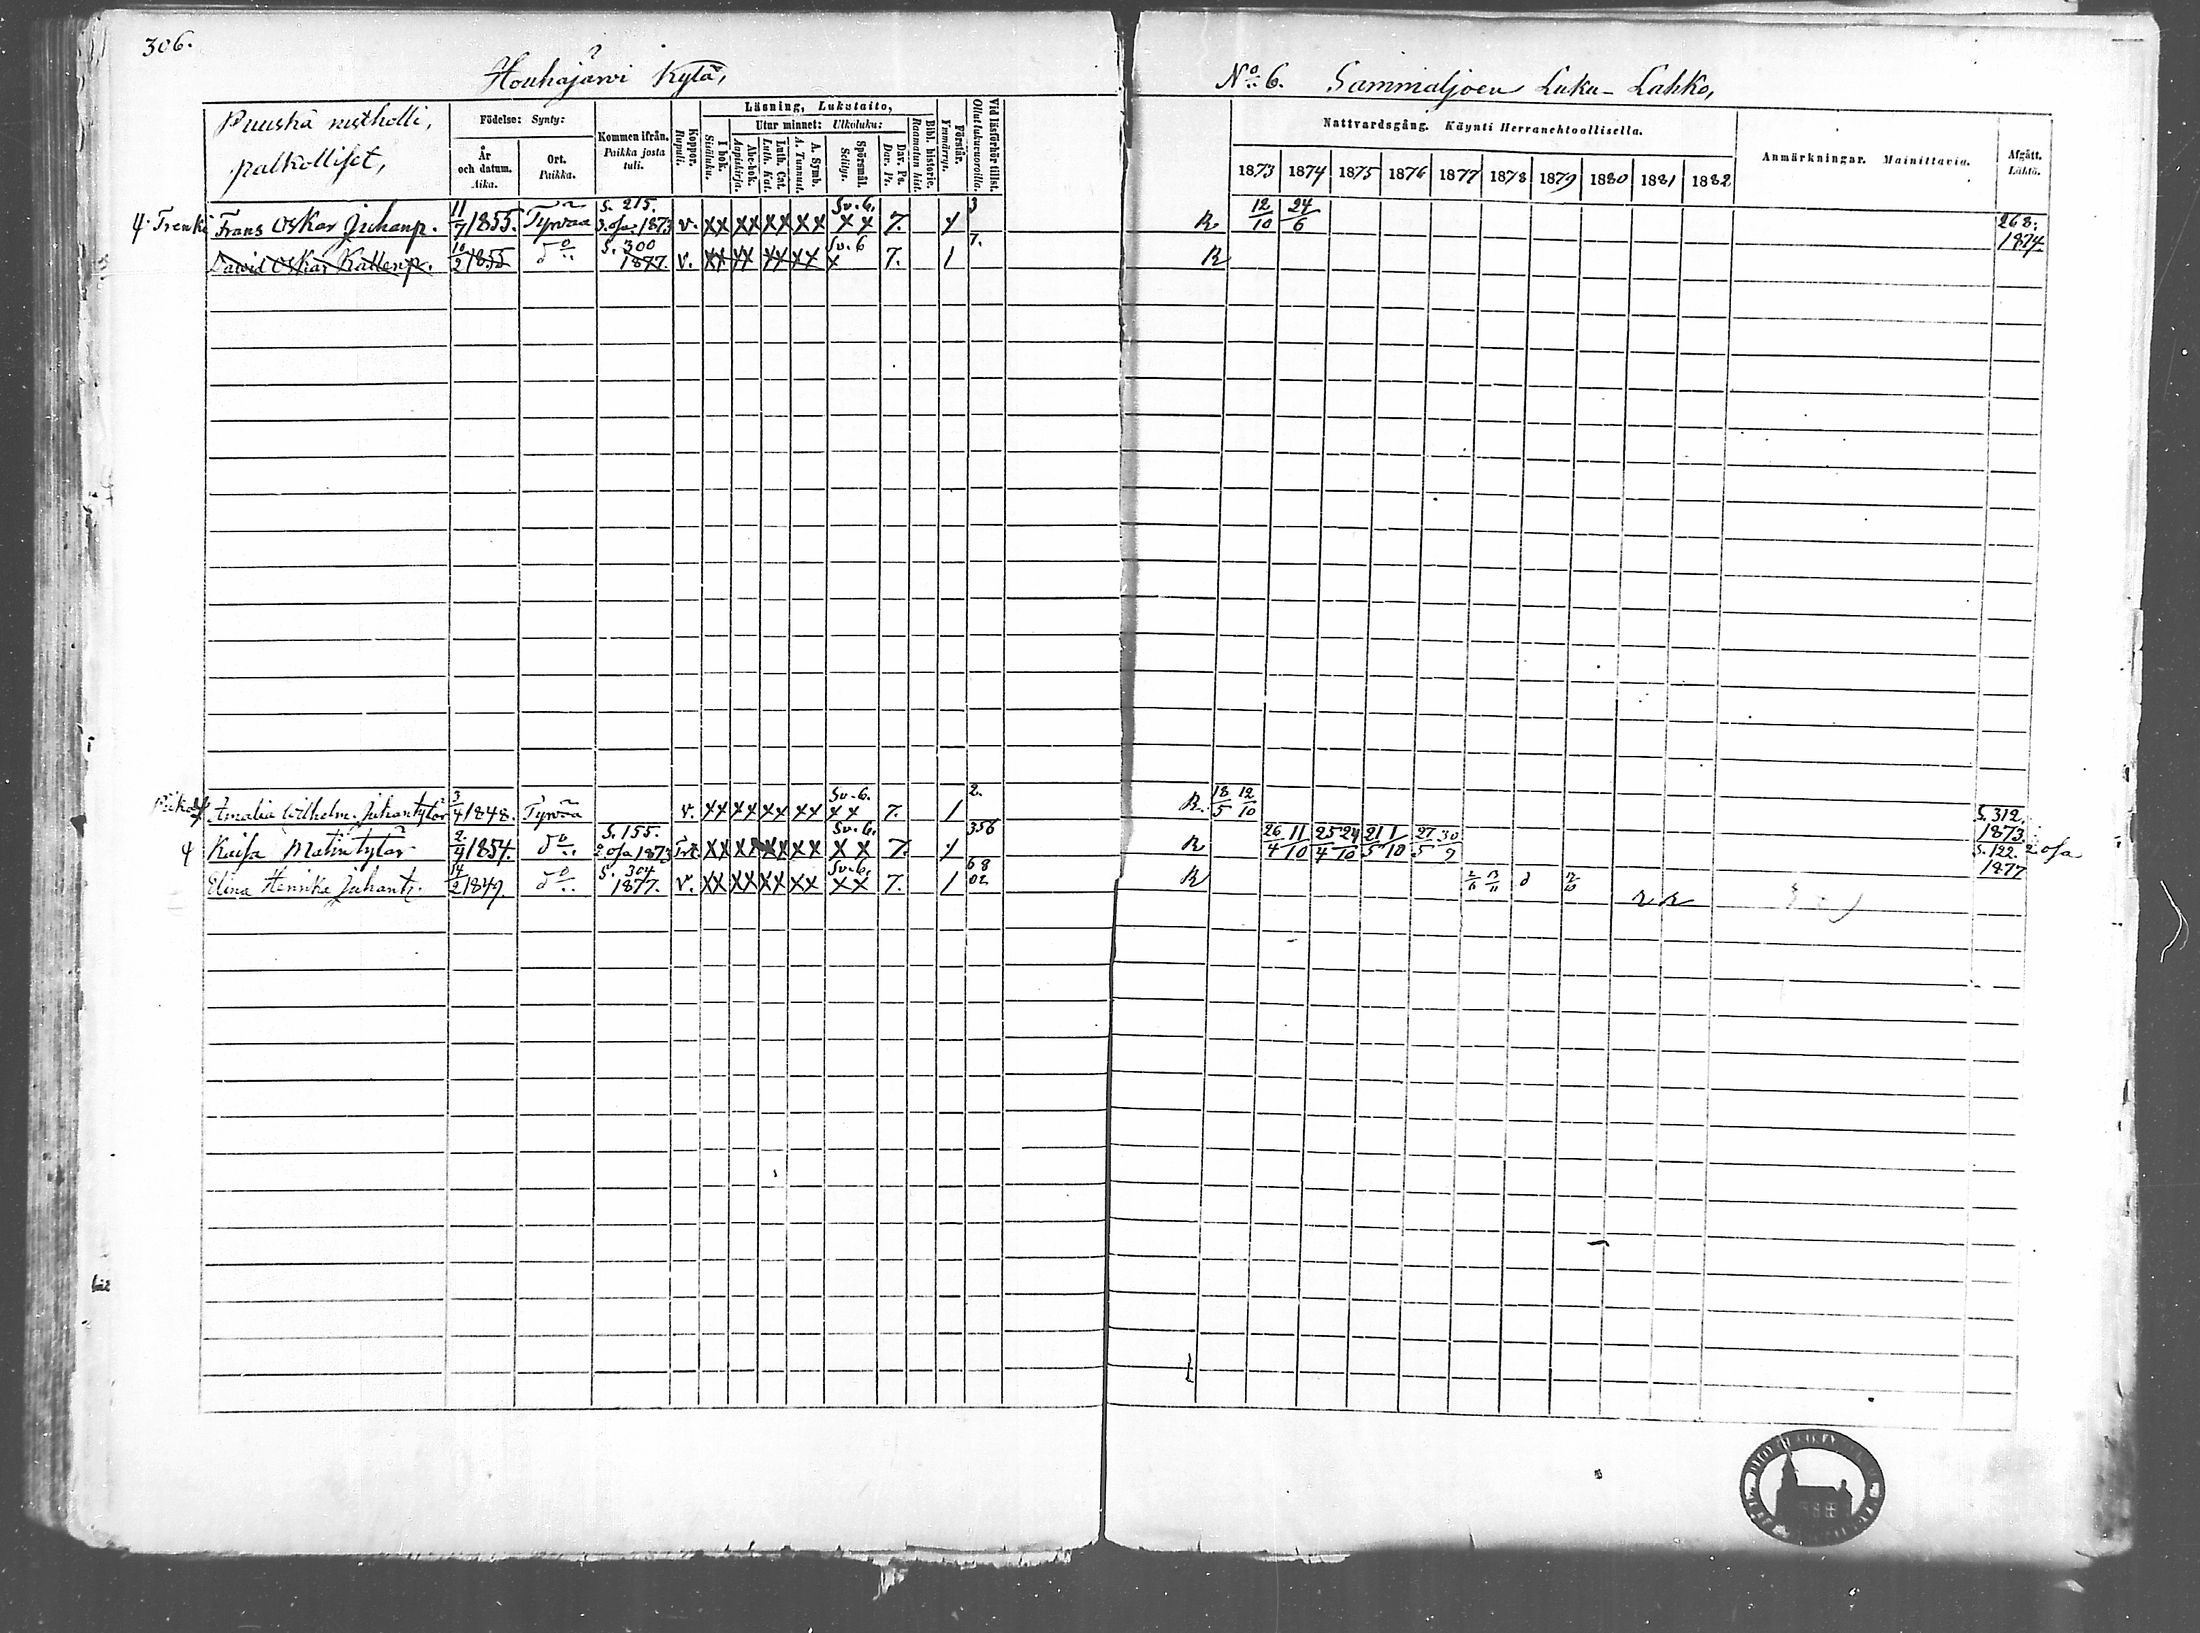 306.
Houhajärvi Kylä,
No 6. Sammaljoen Luku-Lahko,
Puuska rustholli,
palkolliset,
Födelse: Synty:
År och datum. Aika.
Ort. Paikka.
Kommen ifrån. Paikka josta tuli.
Koppor. Rupuli.
Läsning, Lukutaito,
I bok. Sisäluku.
Utur minnet: Ulkoluku:
Abc-bok. Aapiskirja.
Luth. Cat. Luth. Kat.
A. Symb. A. Tunnust.
Spörsmål. Selitys.
Dav. Ps. Dav. Ps.
Bibl. historie. Raamatun hist.
Förstår. Ymmärrys.
Vid läsförhör tillst. Ollut lukuvuoroilla.
Nattvardsgång. Käynti Herranehtoollisella.
1873 1874 1875 1876 1877 1878 1879 1880 1881 1882
Anmärkningar. Mainittavia.
Afgått. Lähtö.
Trenki Frans Oskar Juhanp. 11/7 1855. Tyrvää S. 215. 3. osa. 1873 v. xx xx xx xx Sv. 6. x x 7. 3 R 12/10 24/6 268. 1874
David Oskar Kallenp. 10/2 1855 do S. 300 1877. v. xx xx xx xx Sv. 6 x 7. 1 7. R
Amalia Wilhelm. Juhantytär 3/4 1848. Tyrvää v. xx xx xx xx Sv. 6. x x 7. 1 2. R. 18/5 12/10 S. 312. 1873
Kaisa Matintytär 2/4 1854. do S. 155. 2 osa 1873 xx xx xx xx Sv. 6. x x 7. 356 R 26/4 11/10 25/4 24/10 21/5 1/10 27/5 30/9 S. 122. 2 osa 1877
Elina Henrika Juhant. 14/2 1849. do S. 304 1877. v. xx xx xx xx Sv. 6. xx 7. 1 68 02 R